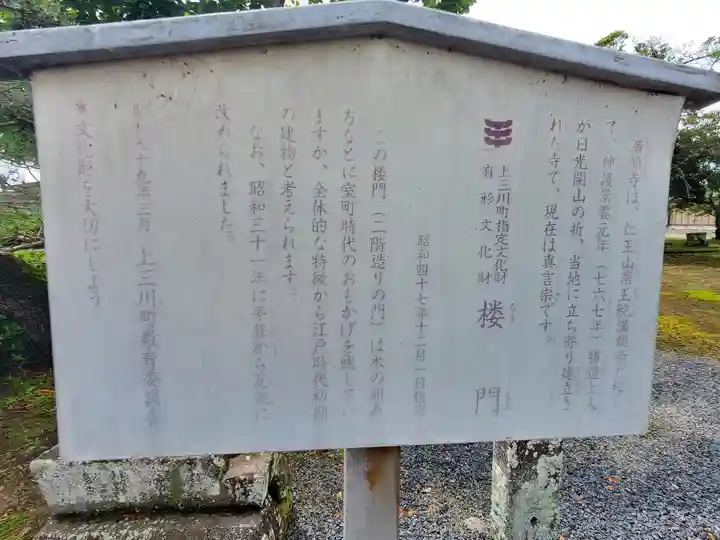 満願寺は、仁王山薬王院満願寺と称し
て、神護景雲元年（七六七年）勝道上人
が日光開山の折、当地に立ち寄り建立さ
れた寺で、現在は真言宗です。
上三川町指定文化財
有形文化財
楼門
昭和四十七年十二月一日指定
この楼門（二階造りの門）は木の組み
方などに室町時代のおもかげを残してい
ますが、全体的な特徴から江戸時代初期
の建物と考えられます。
なお、昭和三十一年に茅葺から瓦葺に
改められました。
十九年三月 上三川町教育委員会
＊文化財を大切にしよう